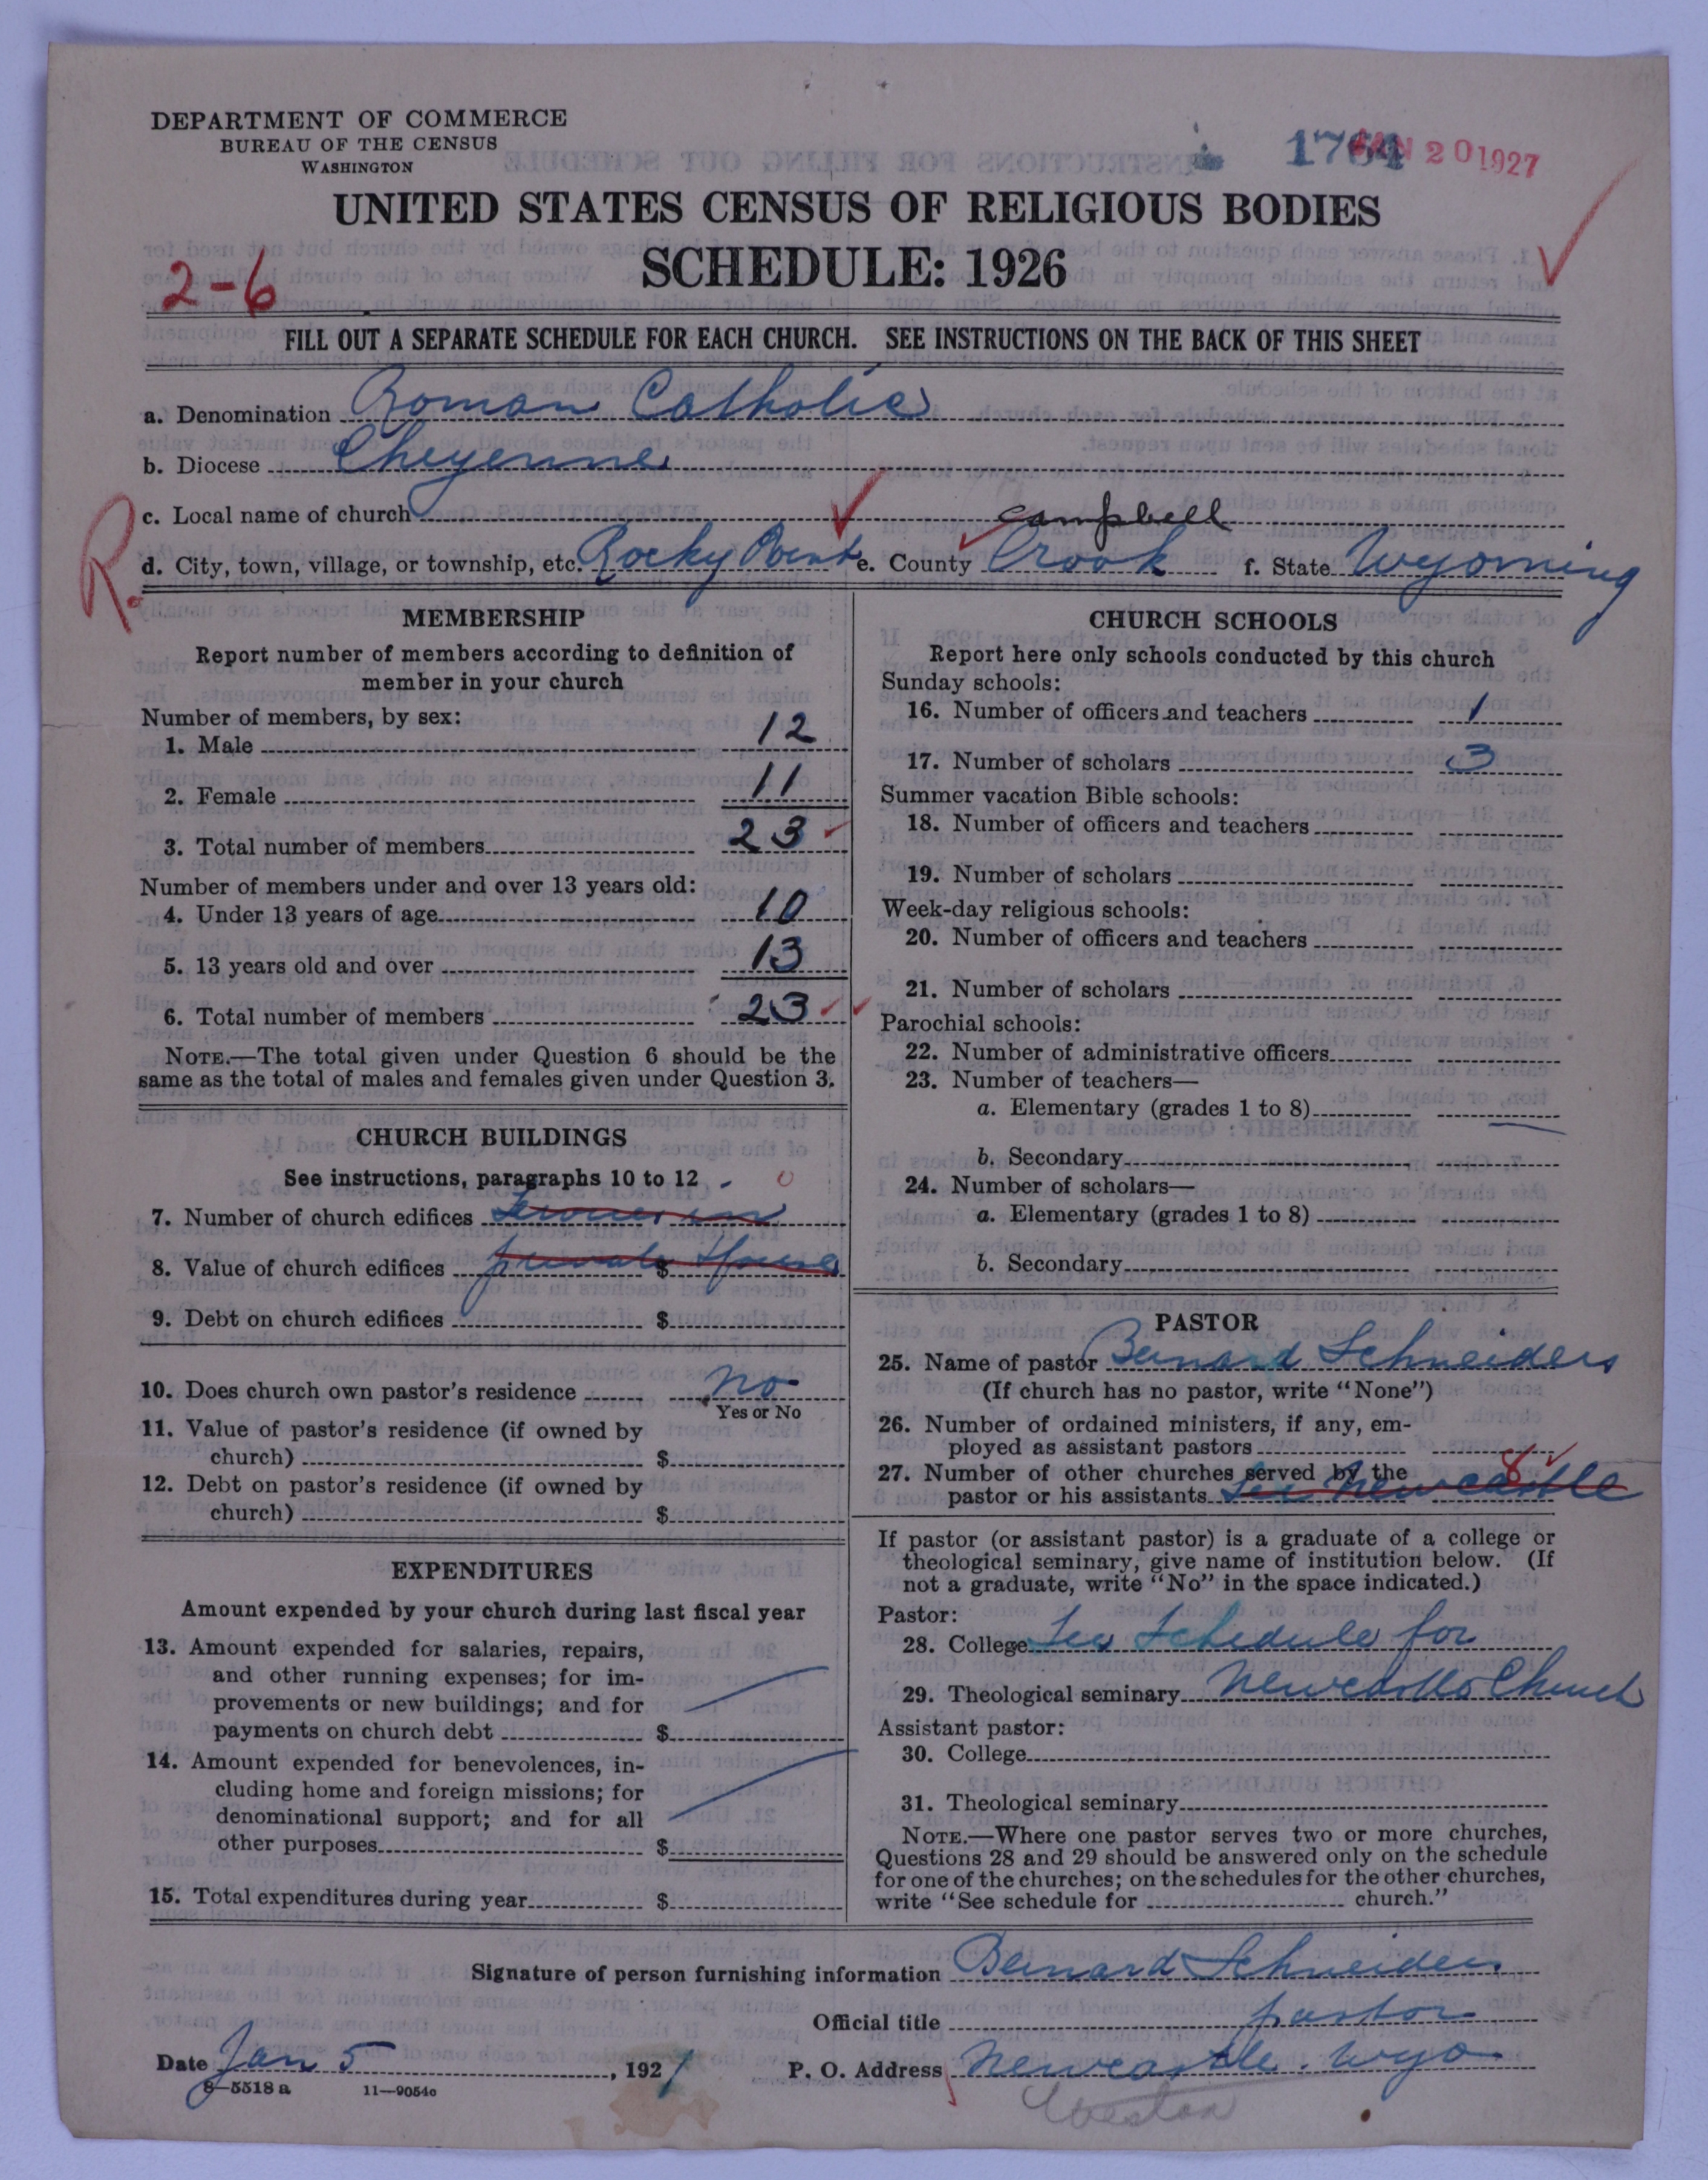 DEPARTMENT OF COMMERCE
BUREAU OF THE CENSUS
WASHINGTON
1764
JAN 20 1927
UNITED STATES CENSUS OF RELIGIOUS BODIES
SCHEDULE: 1926
2-6
FILL OUT A SEPARATE SCHEDULE FOR EACH CHURCH. SEE INSTRUCTIONS ON THE BACK OF THIS SHEET
a. Denomination Roman Catholic
b. Diocese Cheyenne
R.
c. Local name of church
Campbell
d. City, town, village, or township, etc. Rocky Point e. County Crook f. State Wyoming
MEMBERSHIP
Report number of members according to definition of
member in your church
Number of members, by sex:
1. Male 12
2. Female 11
3. Total number of members 23
Number of members under and over 13 years old:
4. Under 13 years of age 10
5. 13 years old and over 13
6. Total number of members 23
NOTE.—The total given under Question 6 should be the
same as the total of males and females given under Question 3.
CHURCH BUILDINGS
See instructions, paragraphs 10 to 12
0
7. Number of church edifices Services in
8. Value of church edifices $ private House
9. Debt on church edifices $
10. Does church own pastor's residence no
Yes or No
11. Value of pastor's residence (if owned by
church) $
12. Debt on pastor's residence (if owned by
church) $
EXPENDITURES
Amount expended by your church during last fiscal year
13. Amount expended for salaries, repairs,
and other running expenses; for im-
provements or new buildings; and for
payments on church debt $
14. Amount expended for benevolences, in-
cluding home and foreign missions; for
denominational support; and for all
other purposes $
15. Total expenditures during year $
CHURCH SCHOOLS
Report here only schools conducted by this church
Sunday schools:
16. Number of officers and teachers 1
17. Number of scholars 3
Summer vacation Bible schools:
18. Number of officers and teachers
19. Number of scholars
Week-day religious schools:
20. Number of officers and teachers
21. Number of scholars
Parochial schools:
22. Number of administrative officers
23. Number of teachers—
a. Elementary (grades 1 to 8)
b. Secondary
24. Number of scholars—
a. Elementary (grades 1 to 8)
b. Secondary
PASTOR
25. Name of pastor Bernard Schneiders
(If church has no pastor, write "None")
26. Number of ordained ministers, if any, em-
ployed as assistant pastors
27. Number of other churches served by the 8
pastor or his assistants See Newcastle
If pastor (or assistant pastor) is a graduate of a college or
theological seminary, give name of institution below. (If
not a graduate, write "No" in the space indicated.)
Pastor:
28. College See Schedule for
29. Theological seminary Newcastle Church
Assistant pastor:
30. College
31. Theological seminary
NOTE.—Where one pastor serves two or more churches,
Questions 28 and 29 should be answered only on the schedule
for one of the churches; on the schedules for the other churches,
write "See schedule for church."
Signature of person furnishing information Bernard Schneiders
Official title pastor
Date Jan 5, 1927 P. O. Address Newcastle. Wyo
8-5518 a 11-9054c
Weston